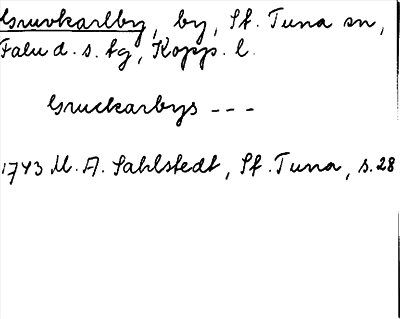 Gruvkarlby, by, St. Tuna sn,
Falu d. s. tg, Kopp. l.
Gruckarbys ---
1743 M. A. Sahlstedt, St. Tuna, s. 28